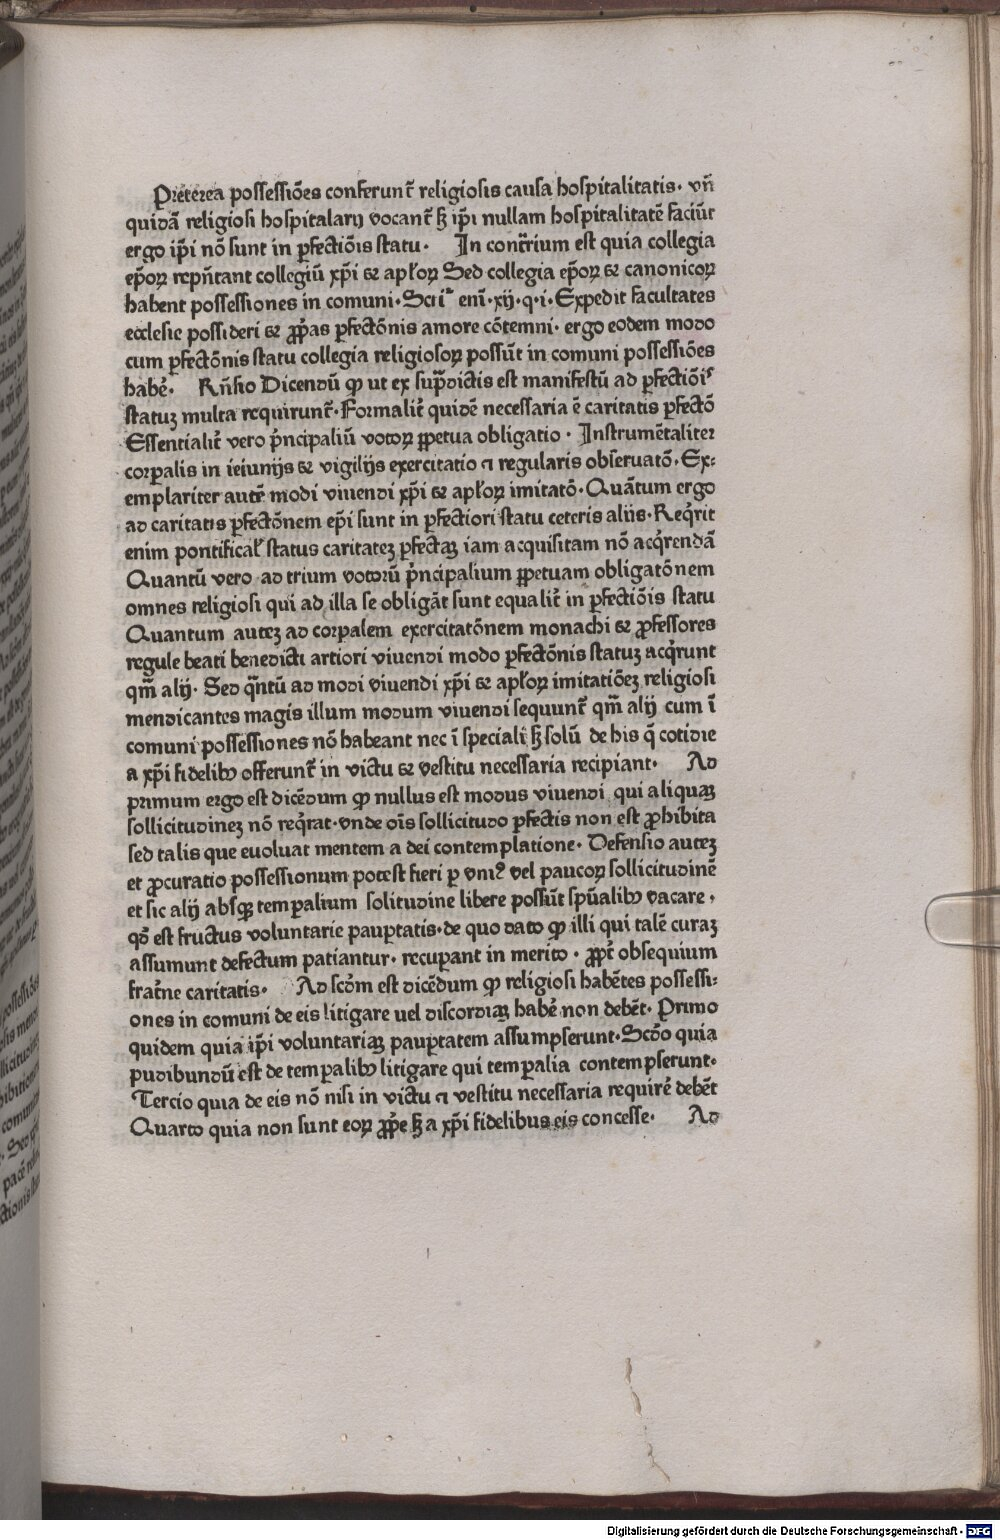 Preterea possessiões conferunt̃ religiosis causa hospitalitatis· vñ
quidã religiosi hospitalarij vocant̃ sꝫ ip̃i nullam hospitalitatẽ faciũt
ergo ip̃i nõ sunt in ꝑfectiõis statu· In cont̃rium est quia collegia
ep̃oꝝ rep̃ñtant collegiũ xp̃i ⁊ apłoꝝ Sed collegia ep̃oꝝ ⁊ canonicoꝝ
habent possessiones in comuni· enĩ·xij·q·i·Expedit facultates
ecclesie possideri ⁊ ꝓp̃as ꝑfectõnis amore cõtemni· ergo eodem modo
cum ꝑfectõnis statu collegia religiosoꝝ possũt in comuni possessiões
habẽ· Rñsio Dicendũ ꝙ ut ex sup̃dictis est manifestũ ad ꝑfectiõis
statuꝫ multa requirunt̃·Formalit̃ quidẽ necessaria ẽ caritatis ꝑfectõ
Essentialit̃ vero p̃ncipaliũ votoꝝ ꝑpetua obligatio· Instrumẽtaliter
corꝑalis in ieiunijs ⁊ vigilijs exercitatio ⁊ regularis obseruatõ·Ex⸗
emplariter autẽ modi viuendi xp̃i ⁊ apłoꝝ imitatõ·Quãtum ergo
ad caritatis ꝑfectõnem ep̃i sunt in ꝑfectiori statu ceteris alijs·Req̃rit
enim pontificał status caritateꝫ ꝑfectaꝫ iam acquisitam nõ acq̃rendã
Quantũ vero ad trium votorũ p̃ncipalium ꝑpetuam obligatõnem
omnes religiosi qui ad illa se obligãt sunt equalit̃ in ꝑfectiõis statu
Quantum auteꝫ ad corꝑalem exercitatõnem monachi ⁊ ꝓfessores
regule beati benedicti artiori viuendi modo ꝑfectõnis statuꝫ acq̃runt
qm̃ alij· Sed q̃ntũ ad modi viuendi xp̃i ⁊ apłoꝝ imitatiõeꝫ religiosi
mendicantes magis illum modum viuendi sequunt̃ qm̃ alij cum ĩ
comuni possessiones nõ habeant nec ĩ speciali sꝫ solũ de his q̃ cotidie
a xp̃i fidelibꝫ offerunt̃ in victu ⁊ vestitu necessaria recipiant· Ad
primum ergo est dicẽdum ꝙ nullus est modus viuendi qui aliquaꝫ
sollicitudineꝫ nõ req̃rat·vnde oĩs sollicitudo ꝑfectis non est ꝓhibita
sed talis que euoluat mentem a dei contemplatione· Defensio auteꝫ
et ꝓcuratio possessionum potest fieri ꝑ vniꝰ vel paucoꝝ sollicitudinẽ
et sic alij absqꝫ temꝑalium solitudine libere possũt spũalibꝫ vacare·
qd̃ est fructus voluntarie pauꝑtatis·de quo dato ꝙ illi qui talẽ curaꝫ
assumunt defectum patiantur· recuꝑant in merito· ꝓpt̃ obsequium
frat̃ne caritatis· Ad scd̃m est dicẽdum ꝙ religiosi habẽtes possessi⸗
ones in comuni de eis litigare uel discordiaꝫ habẽ non debẽt· Primo
quidem quia ip̃i voluntariaꝫ pauꝑtatem assumpserunt·Scdo quia
pudibundũ est de temꝑalibꝫ litigare qui temꝑalia contempserunt·
Tercio quia de eis nõ nisi in victu ⁊ vestitu necessaria requirẽ debẽt
Quarto quia non sunt eoꝝ ꝓp̃e sꝫ a xp̃i fidelibus eis concesse· Ad
Digitalisierung gefördert durch die Deutsche Forschungsgemeinschaft · DFG